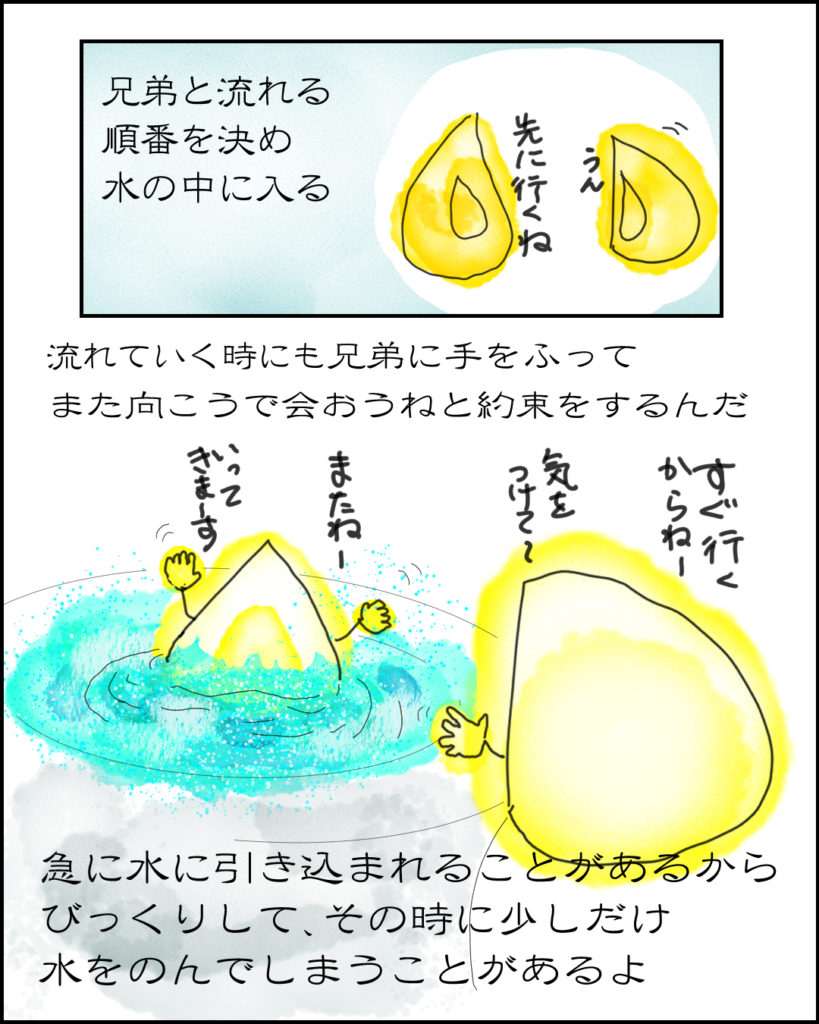 兄弟と流れる
順番を決め
水の中に入る
先に行くね
うん
流れていく時にも兄弟に手をふって
また向こうで会おうねと約束をするんだ
すぐ行く
からねー
気を
つけて〜
またねー
いって
きまーす
急に水に引き込まれることがあるから
びっくりして、その時に少しだけ
水をのんでしまうことがあるよ